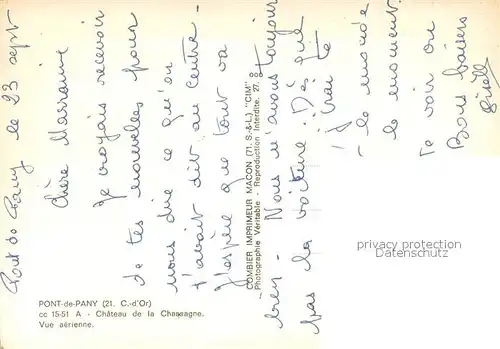 Pont de Pany le 23 sept
Chère Marraine
Je croyais recevoir
de tes nouvelles pour
nous dire ce qu'on
t'avait dit au centre -
J'espère que tout va
bien - Nous n'avons toujours
pas la voiture. Dès que
j'irai te
le monde
le moment
Te voir ou
Bons baisers
COMBIER IMPRIMEUR MACON (71. S.-&-L.) "CIM"
Photographie Véritable - Reproduction Interdite. 27.
PONT-de-PANY (21. C.-d'Or)
cc 15-51 A - Château de la Chassagne.
Vue aérienne.
privacy protection
Datenschutz